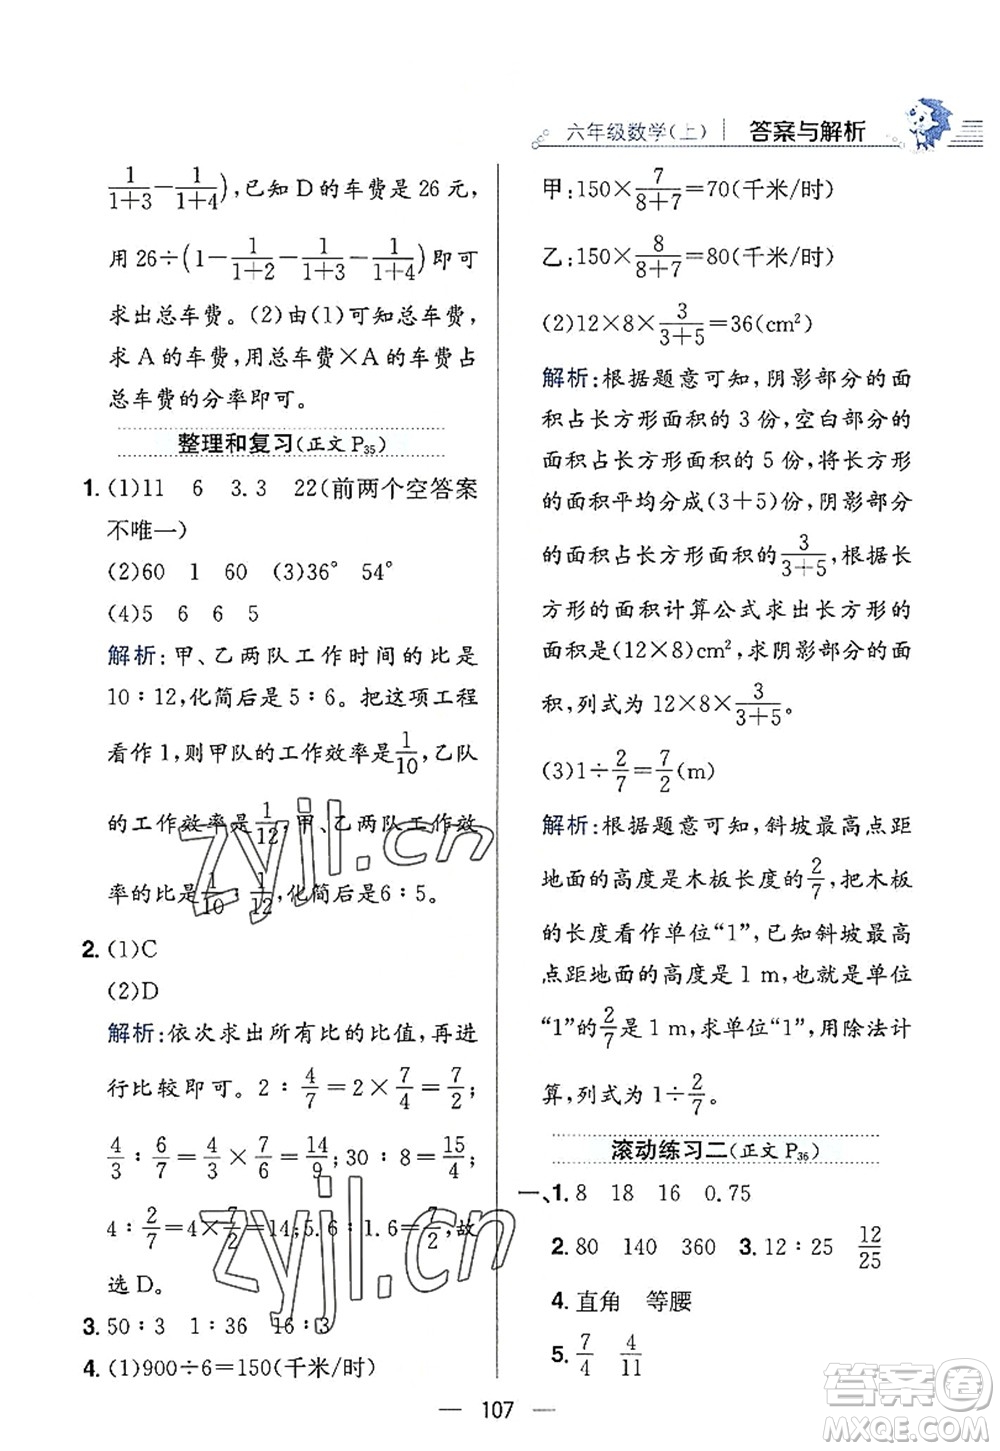 六年级数学(上) 答案与解析
1/(1+3)−1/(1+4)),已知 D 的车费是 26 元,
用 26÷(1−1/(1+2)−1/(1+3)−1/(1+4))即可
求出总车费。(2)由(1)可知总车费,
求 A 的车费,用总车费×A 的车费占
总车费的分率即可。
整理和复习(正文 P35)
1. (1)11 6 3.3 22(前两个空答案
不唯一)
(2)60 1 60 (3)36° 54°
(4)5 6 6 5
解析:甲、乙两队工作时间的比是
10∶12,化简后是 5∶6。把这项工程
看作 1,则甲队的工作效率是1/10,乙队
的工作效率是1/12,甲、乙两队工作效
率的比是1/10∶1/12,化简后是6∶5。
2. (1)C
(2)D
解析:依次求出所有比的比值,再进
行比较即可。2∶4/7=2×7/4=7/2;
4/3∶6/7=4/3×7/6=14/9;30∶8=15/4;
4∶2/7=4×7/2=14;5.6∶1.6=7/2,故
选 D。
3. 50∶3 1∶36 16∶3
4. (1)900÷6=150(千米/时)
甲:150×7/(8+7)=70(千米/时)
乙:150×8/(8+7)=80(千米/时)
(2)12×8×3/(3+5)=36(cm²)
解析:根据题意可知,阴影部分的面
积占长方形面积的 3 份,空白部分的
面积占长方形面积的 5 份,将长方形
的面积平均分成(3+5)份,阴影部分
的面积占长方形面积的3/(3+5),根据长
方形的面积计算公式求出长方形的面
积是(12×8)cm²,求阴影部分的面
积,列式为 12×8×3/(3+5)。
(3)1÷2/7=7/2(m)
解析:根据题意可知,斜坡最高点距
地面的高度是木板长度的2/7,把木板
的长度看作单位“1”,已知斜坡最高
点距地面的高度是 1 m,也就是单位
“1”的2/7是 1 m,求单位“1”,用除法计
算,列式为 1÷2/7。
滚动练习二(正文 P36)
一、1. 8 18 16 0.75
2. 80 140 360 3. 12∶25 12/25
4. 直角 等腰
5. 7/4 4/11
107
zyjl.cn
zyjl.cn
答案圈
MXQE.COM